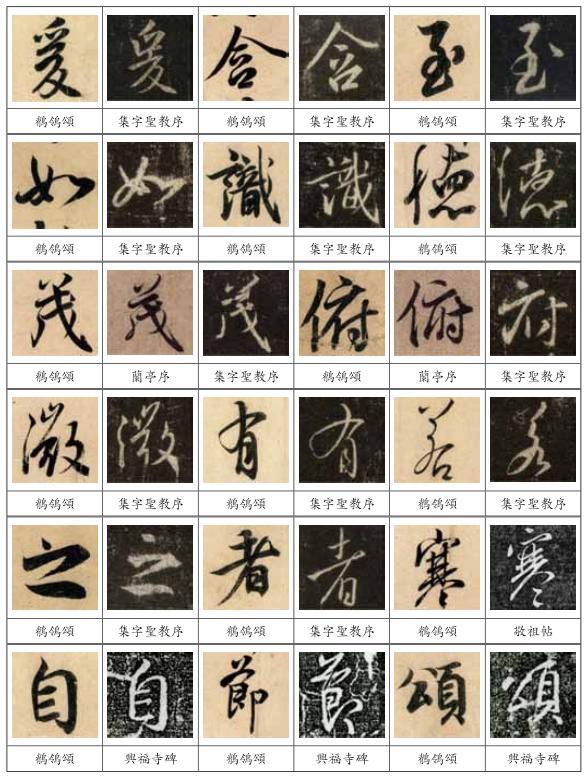 爰 爰 含 含 至 至
鶺鴒頌 集字聖教序 鶺鴒頌 集字聖教序 鶺鴒頌 集字聖教序
如 如 識 識 德 德
鶺鴒頌 集字聖教序 鶺鴒頌 集字聖教序 鶺鴒頌 集字聖教序
茂 茂 茂 俯 俯 府
鶺鴒頌 蘭亭序 集字聖教序 鶺鴒頌 蘭亭序 集字聖教序
微 微 有 有 若 若
鶺鴒頌 集字聖教序 鶺鴒頌 集字聖教序 鶺鴒頌 集字聖教序
之 之 者 者 寒 寒
鶺鴒頌 集字聖教序 鶺鴒頌 集字聖教序 鶺鴒頌 敬祖帖
自 自 節 節 頌 頌
鶺鴒頌 興福寺碑 鶺鴒頌 興福寺碑 鶺鴒頌 興福寺碑